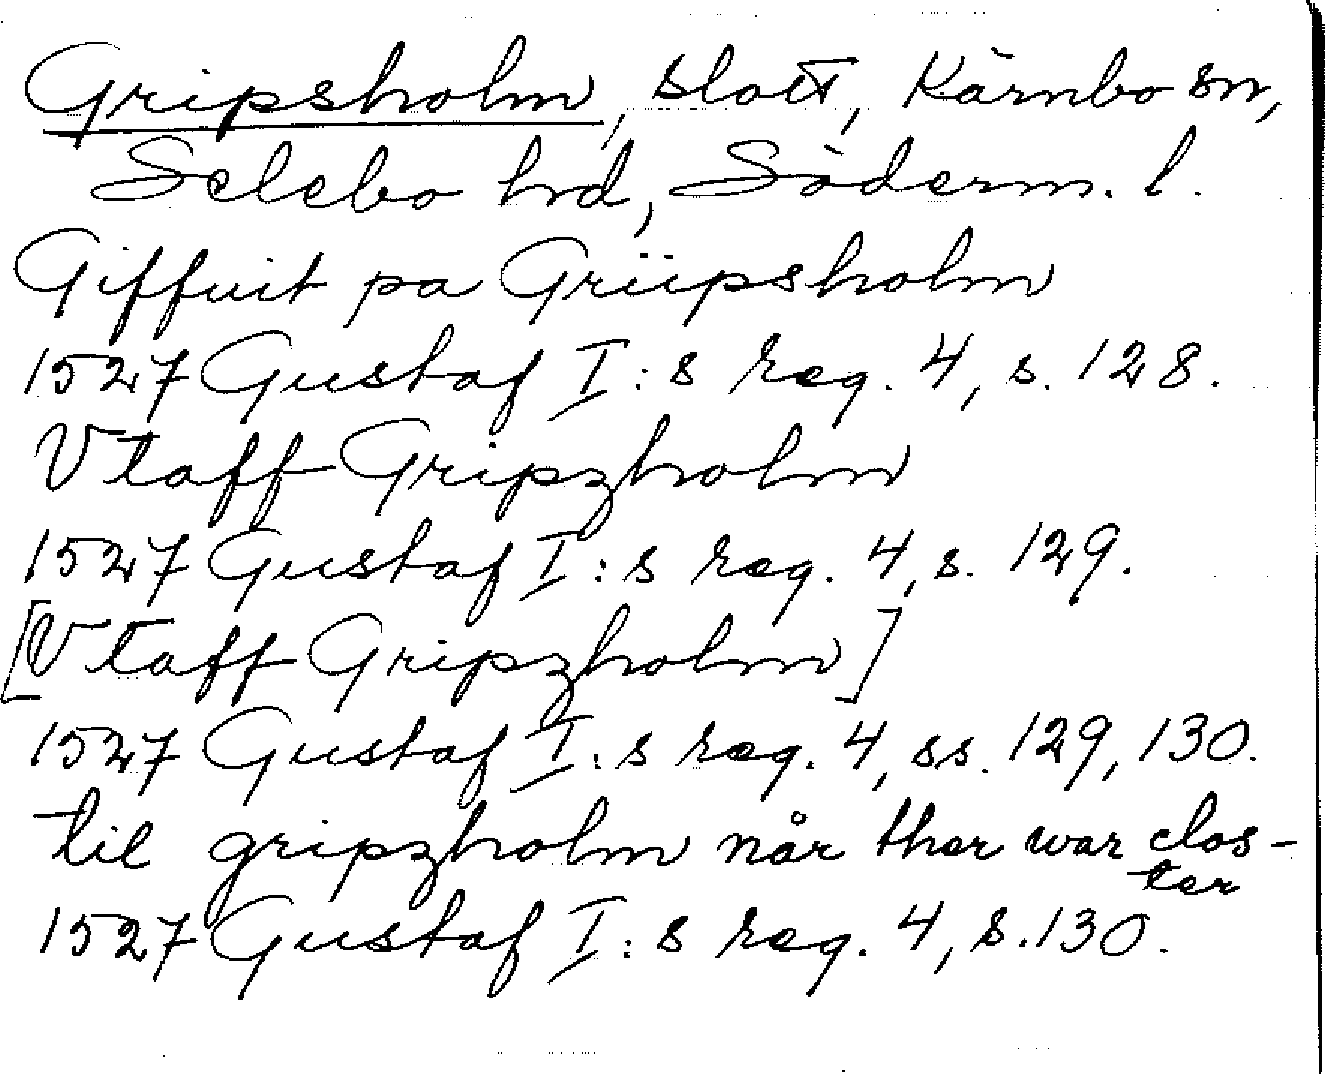 Gripsholm, slott, Kärnbo sn,
Selebo hd, Söderm. l.
Giffuit pa Griipsholm
1527 Gustaf I:s reg. 4, s. 128.
Vtaff Gripzholm
1527 Gustaf I:s reg. 4, s. 129.
[Vtaff Gripzholm]
1527 Gustaf I:s reg. 4, ss. 129, 130.
til gripzholm når ther war clos-
ter
1527 Gustaf I:s reg. 4, s. 130.